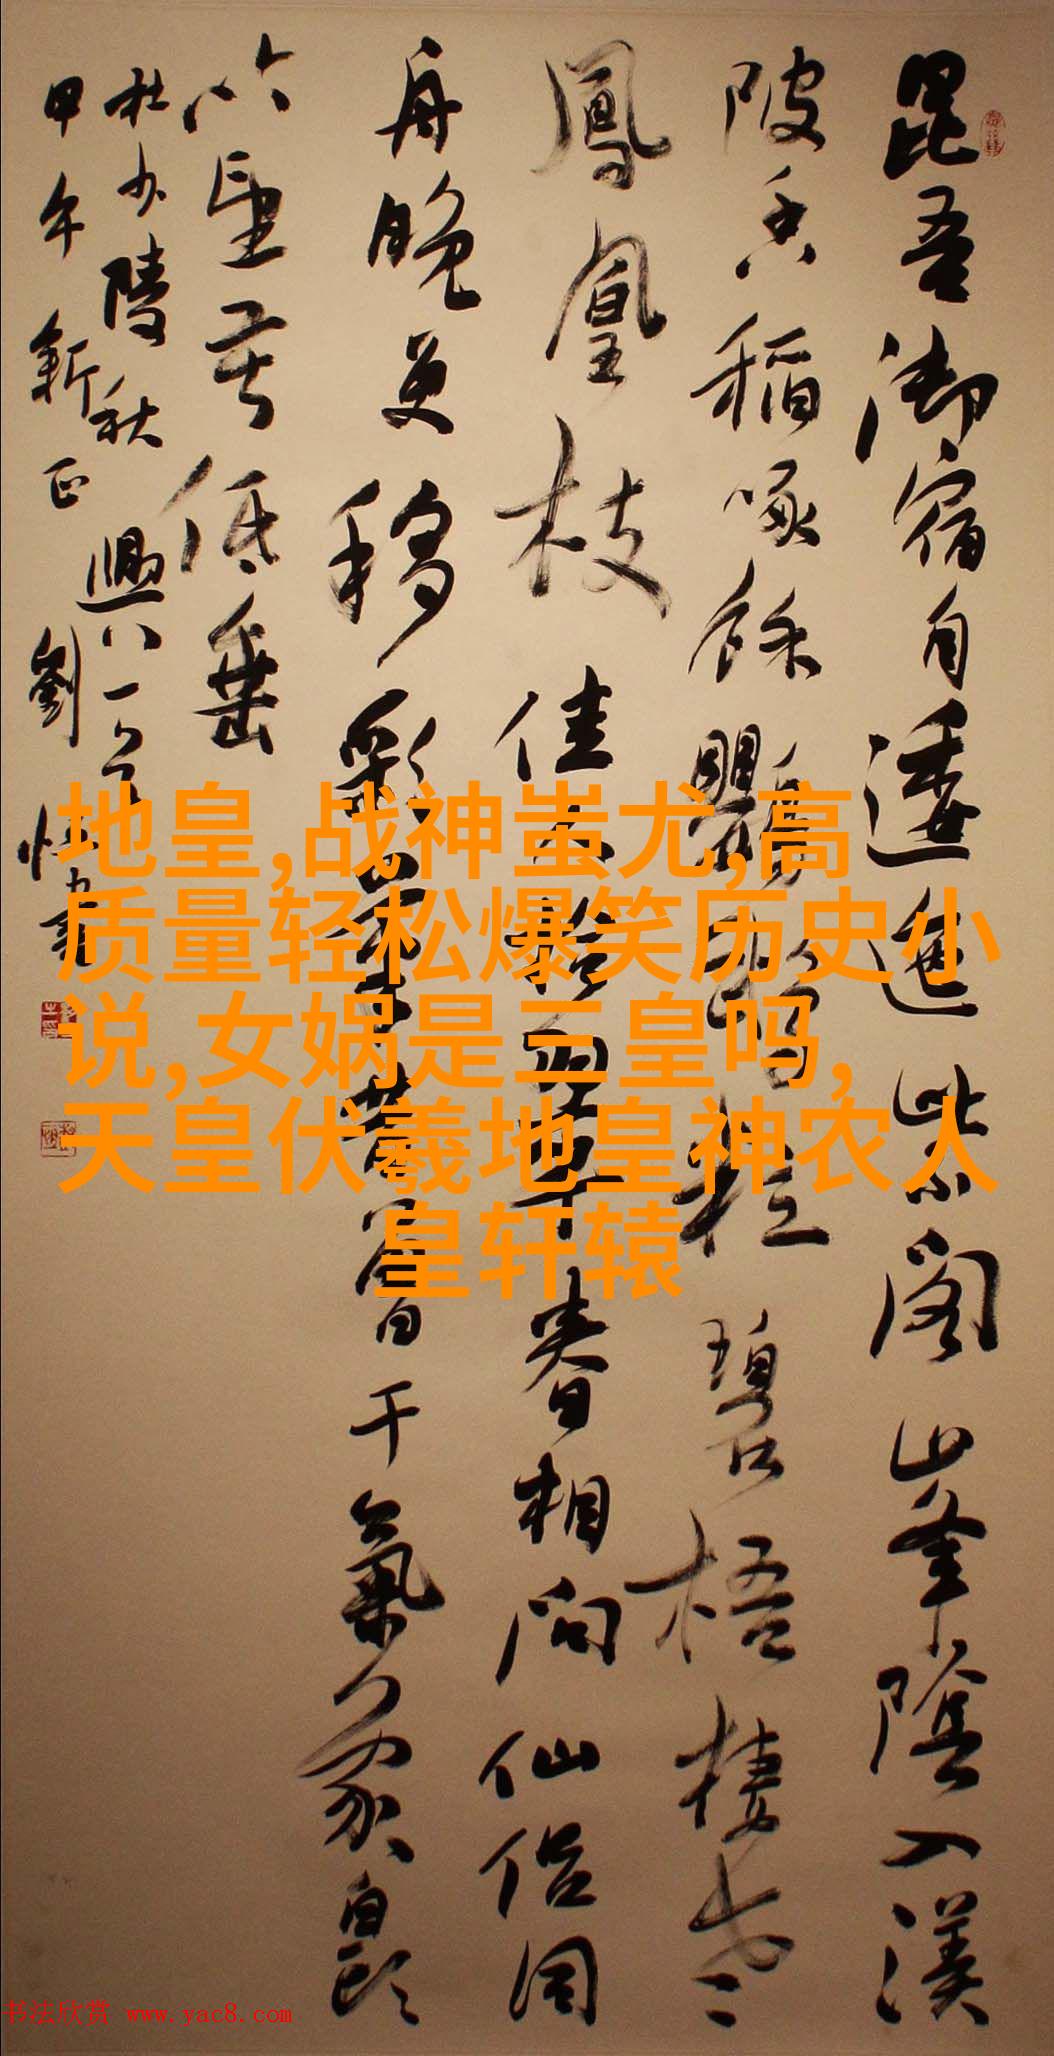 昆吾御宿自逶迤紫阁峯陰入渼
陂香稻啄餘鸚鵡粒碧梧棲老
鳳凰枝佳人拾翠春相问仙侣同
舟晚更移彩筆昔曾干氣象白頭
吟望苦低垂
杜少陵秋興八
甲午新正劉
地皇,战神蚩尤,高
质量轻松爆笑历史小
说,女娲是三皇吗,
天皇伏羲地皇神农人
皇轩辕
书法欣赏 www.yac8.com